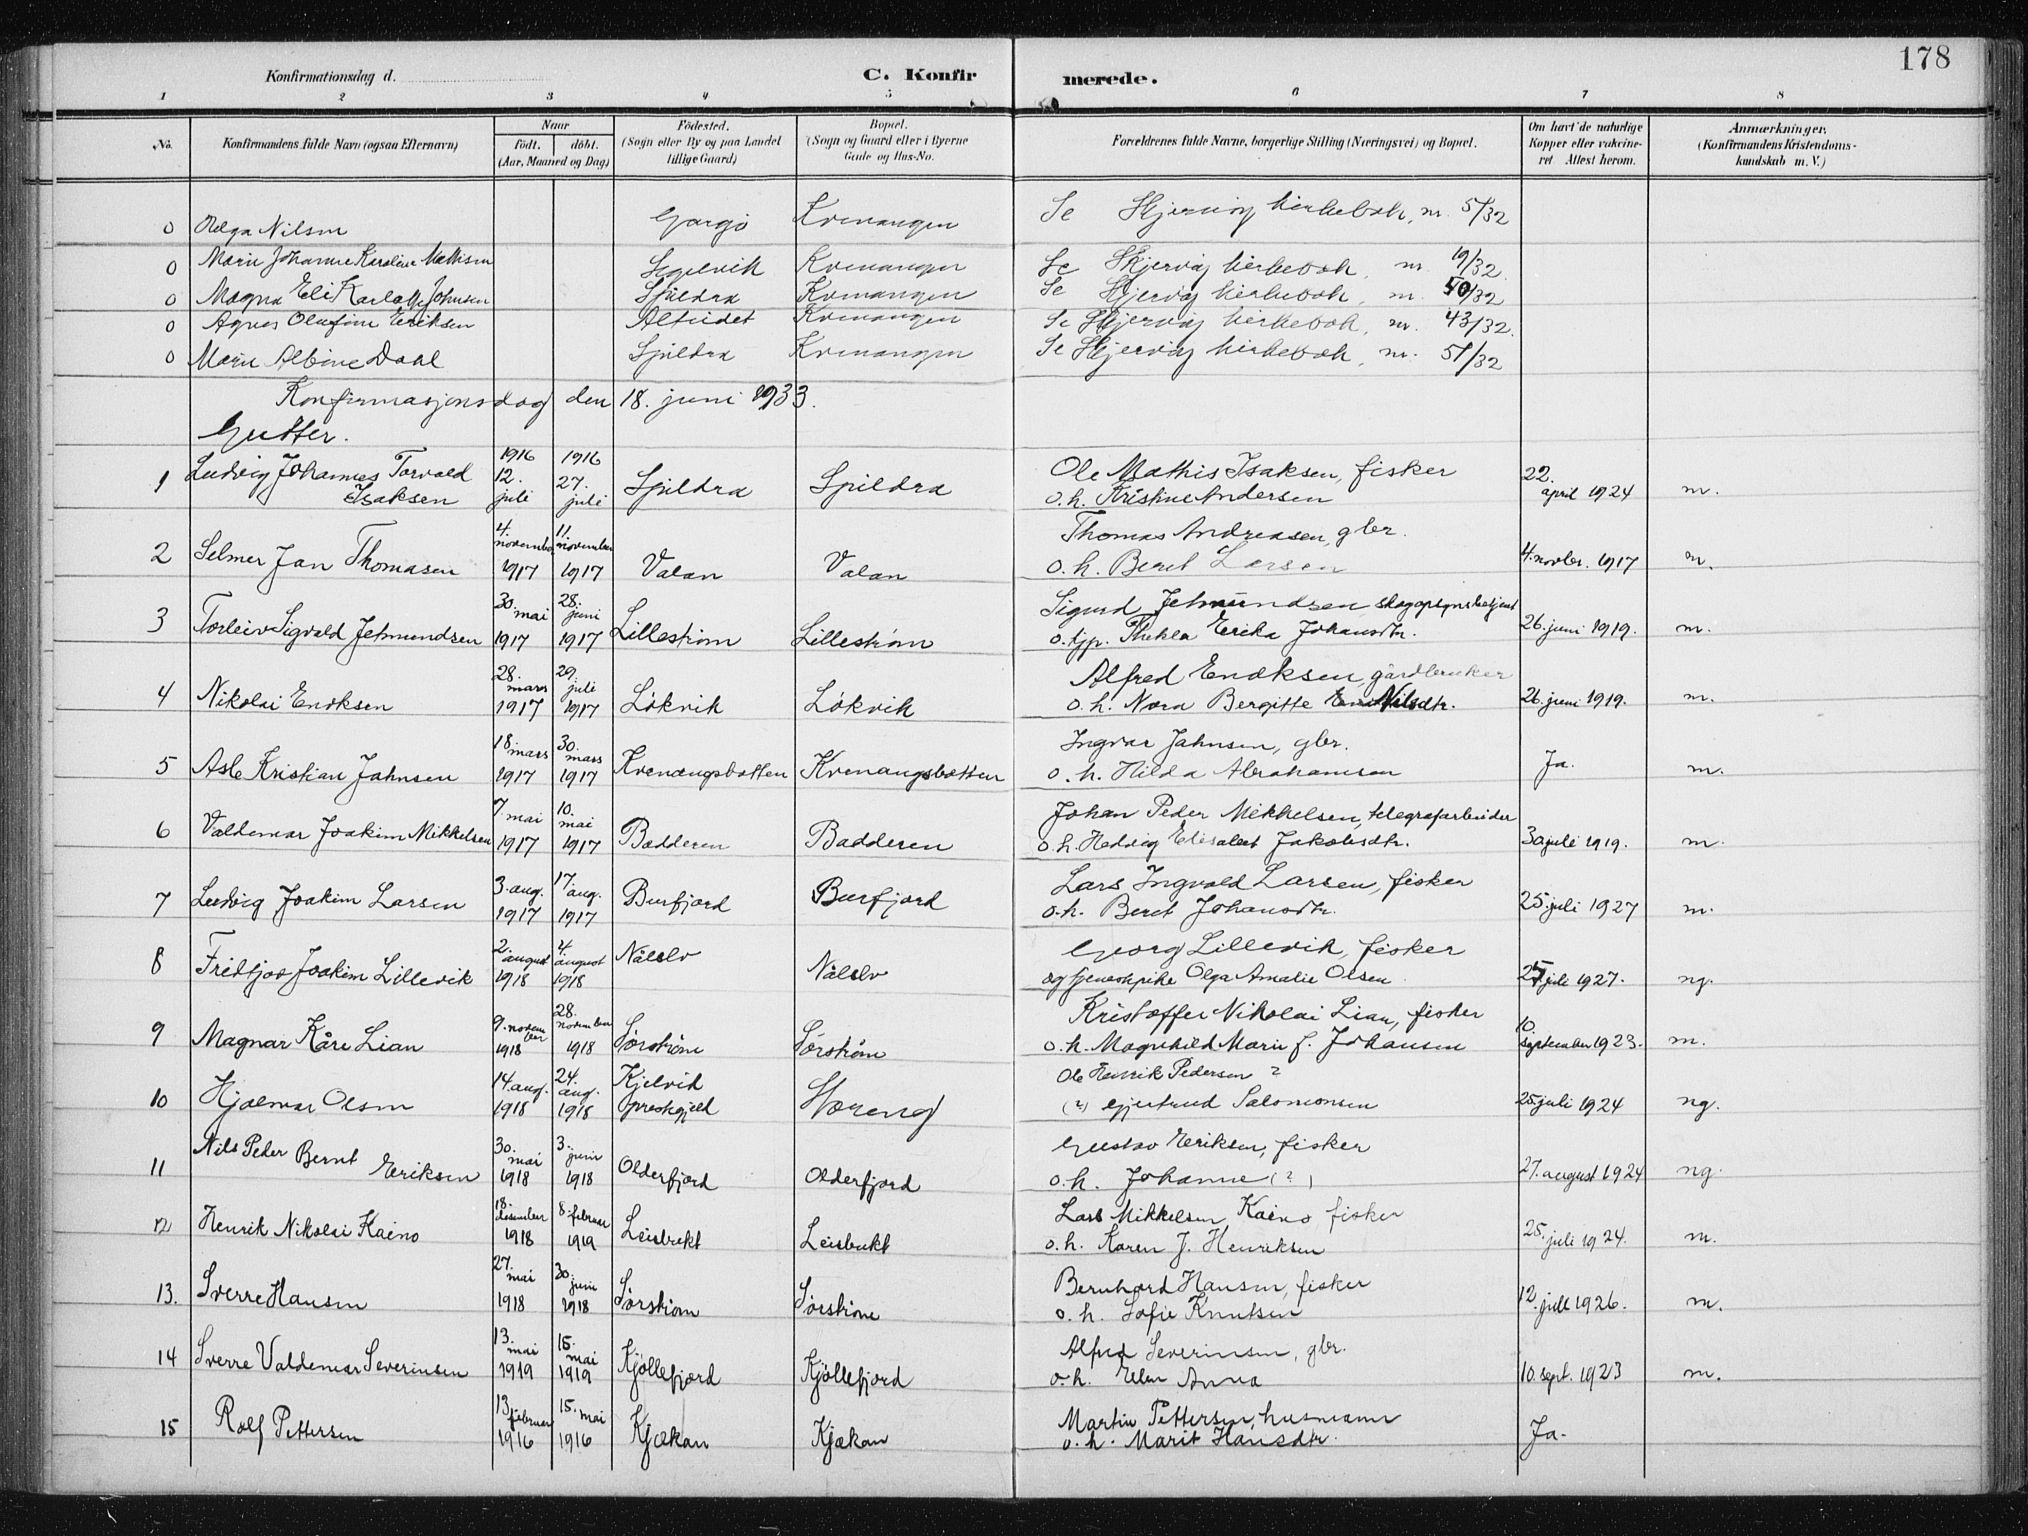 178
Konfirmationsdag d.
C. Konfirmerede.
1 2 3 4 5 6 7 8
No. Konfirmandens fulde Navn (ogsaa Efternavn) Naar født. døbt. (Aar, Maaned og Dag) Fødested. (Sogn eller By og paa Landet tillige Gaard) Bopæl. (Sogn og Gaard eller i Byerne Gade og Hus-No. Forældrenes fulde Navne, borgerlige Stilling (Næringsvei) og Bopæl. Om havt de naturlige Kopper eller vakcineret Attest herom. Anmærkninger. (Konfirmandens Kristendomskundskab m. V.)
0 Olga Nilsen Gargo Kvenangen Se Skjervøy kirkebok, nr. 5/32
0 Marie Johanne Karoline Mathisen Segelvik Kvenangen Se Skjervøy kirkebok, nr. 19/32.
0 Magna Eli Karlotte Johnsen Spildra Kvenangen Se Skjervøy kirkebok, nr. 50/32
0 Agnes Olufine Eriksen Alteidet Kvenangen Se Skjervøy kirkebok, nr. 43/32.
0 Marie Albine Dahl Spildra Kvenangen Se Skjervøy kirkebok, nr. 51/32
Konfirmasjonsdag den 18. juni 1933.
Gutter.
1 Ludvig Johannes Torvald Isaksen 1916 12. juli 1916 27. juli Spildra Spildra Ole Mathis Isaksen, fisker
o. h. Kristine Andersen 22. april 1924 m.
2 Selmer Jan Thomasen 4. november 1917 11. november 1917 Valan Valan Thomas Andreasen, gbr.
o. h. Beret Larsen 4. novbr. 1917 m.
3 Torleiv Sigvald Jetmundsen 30. mai 1917 28. juni 1917 Lillestrøm Lillestrøm Sigurd Jetmundsen skogopsynsbetjent
o. tjp. Thekla Erika Johansdtr. 26. juni 1919. m.
4 Nikolai Enoksen 28. mars 1917 29. juli 1917 Løkvik Løkvik Alfred Enoksen, gårdbruker
o. h. Nora Bergitte Nilsdtr. 26. juni 1919. m.
5 Asle Kristian Jahnsen 18. mars 1917 30. mars 1917 Kvenangsbotten Kvenangsbotten Ingvar Jahnsen, gbr.
o. h. Hilda Abrahamsen Ja. m.
6 Valdemar Joakim Mikkelsen 7. mai 1917 10. mai 1917 Badderen Badderen Johan Peder Mikkelsen, telegrafarbeider
o. h. Hedvig Elisabet Jakobsdtr. 30 juli 1919. m.
7 Ludvig Joakim Larsen 3. aug. 1917 17 aug. 1917 Burfjord Burfjord Lars Ingvald Larsen, fisker
o. h. Beret Johansdtr. 25. juli 1927 m.
8 Fridtjov Joakim Lillevik 2. august 1918 4. august 1918 Nålslv Nålslv Georg Lillevik, fisker
og tjenestpike Olga Amalie Olsen. 25 juli 1927. ng.
9 Magnar Kåre Lian 9. november 1918 28. november 1918 Sørstrøm Sørstrøm Kristoffer Nikolai Lian, fisker
o. h. Magnhild Marie f. Johansen 10. september 1923. m.
10 Hjalmar Olsen 14. aug. 1918 24. aug. 1918 Kjelvik prestegjeld Storeng Ole Henrik Pedersen ?
(?) Gjertrud Salomonsen 25. juli 1924 ng.
11 Nils Peder Bernt Eriksen 30. mai 1918 3. juni 1918 Olderfjord Olderfjord Gustav Eriksen, fisker
o. h. Johanne (?) 27. august 1924 ng.
12 Henrik Nikolai Kaino 18. desember 1918 8. februar 1919 Leisbukt Leisbukt Lars Mikkelsen Kaino fisker
o. h. Karen J. Henriksen 25. juli 1924. m.
13. Sverre Hansen 27. mai 1918 30. juni 1918 Sørstrøm Sørstrøm Bernhard Hansen, fisker
o. h. Sofie Knutsen 12. juli 1926. m.
14 Sverre Valdemar Severinsen 13. mai 1919 15. mai 1919 Kjøllefjord Kjøllefjord Alfred Severinsen, gbr.
o. h. Elen Anna 10. sept. 1923 m.
15 Rolf Pettersen 13. februar 1916 15. mai 1916 Kjækan Kjækan Martin Pettersen, husmann
o. h. Marit Hansdtr. Ja.